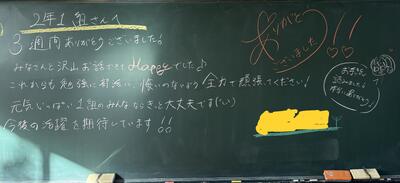 2年1組さんへ
3週間ありがとうございました!
みなさんと沢山お話できてHappyでした♪
これからも勉強に部活に、悔いのないよう全力で頑張ってください!
元気いっぱい1組のみんなならきっと大丈夫です(^^)
今後の活躍を期待しています!!
ありがとう
ございました!